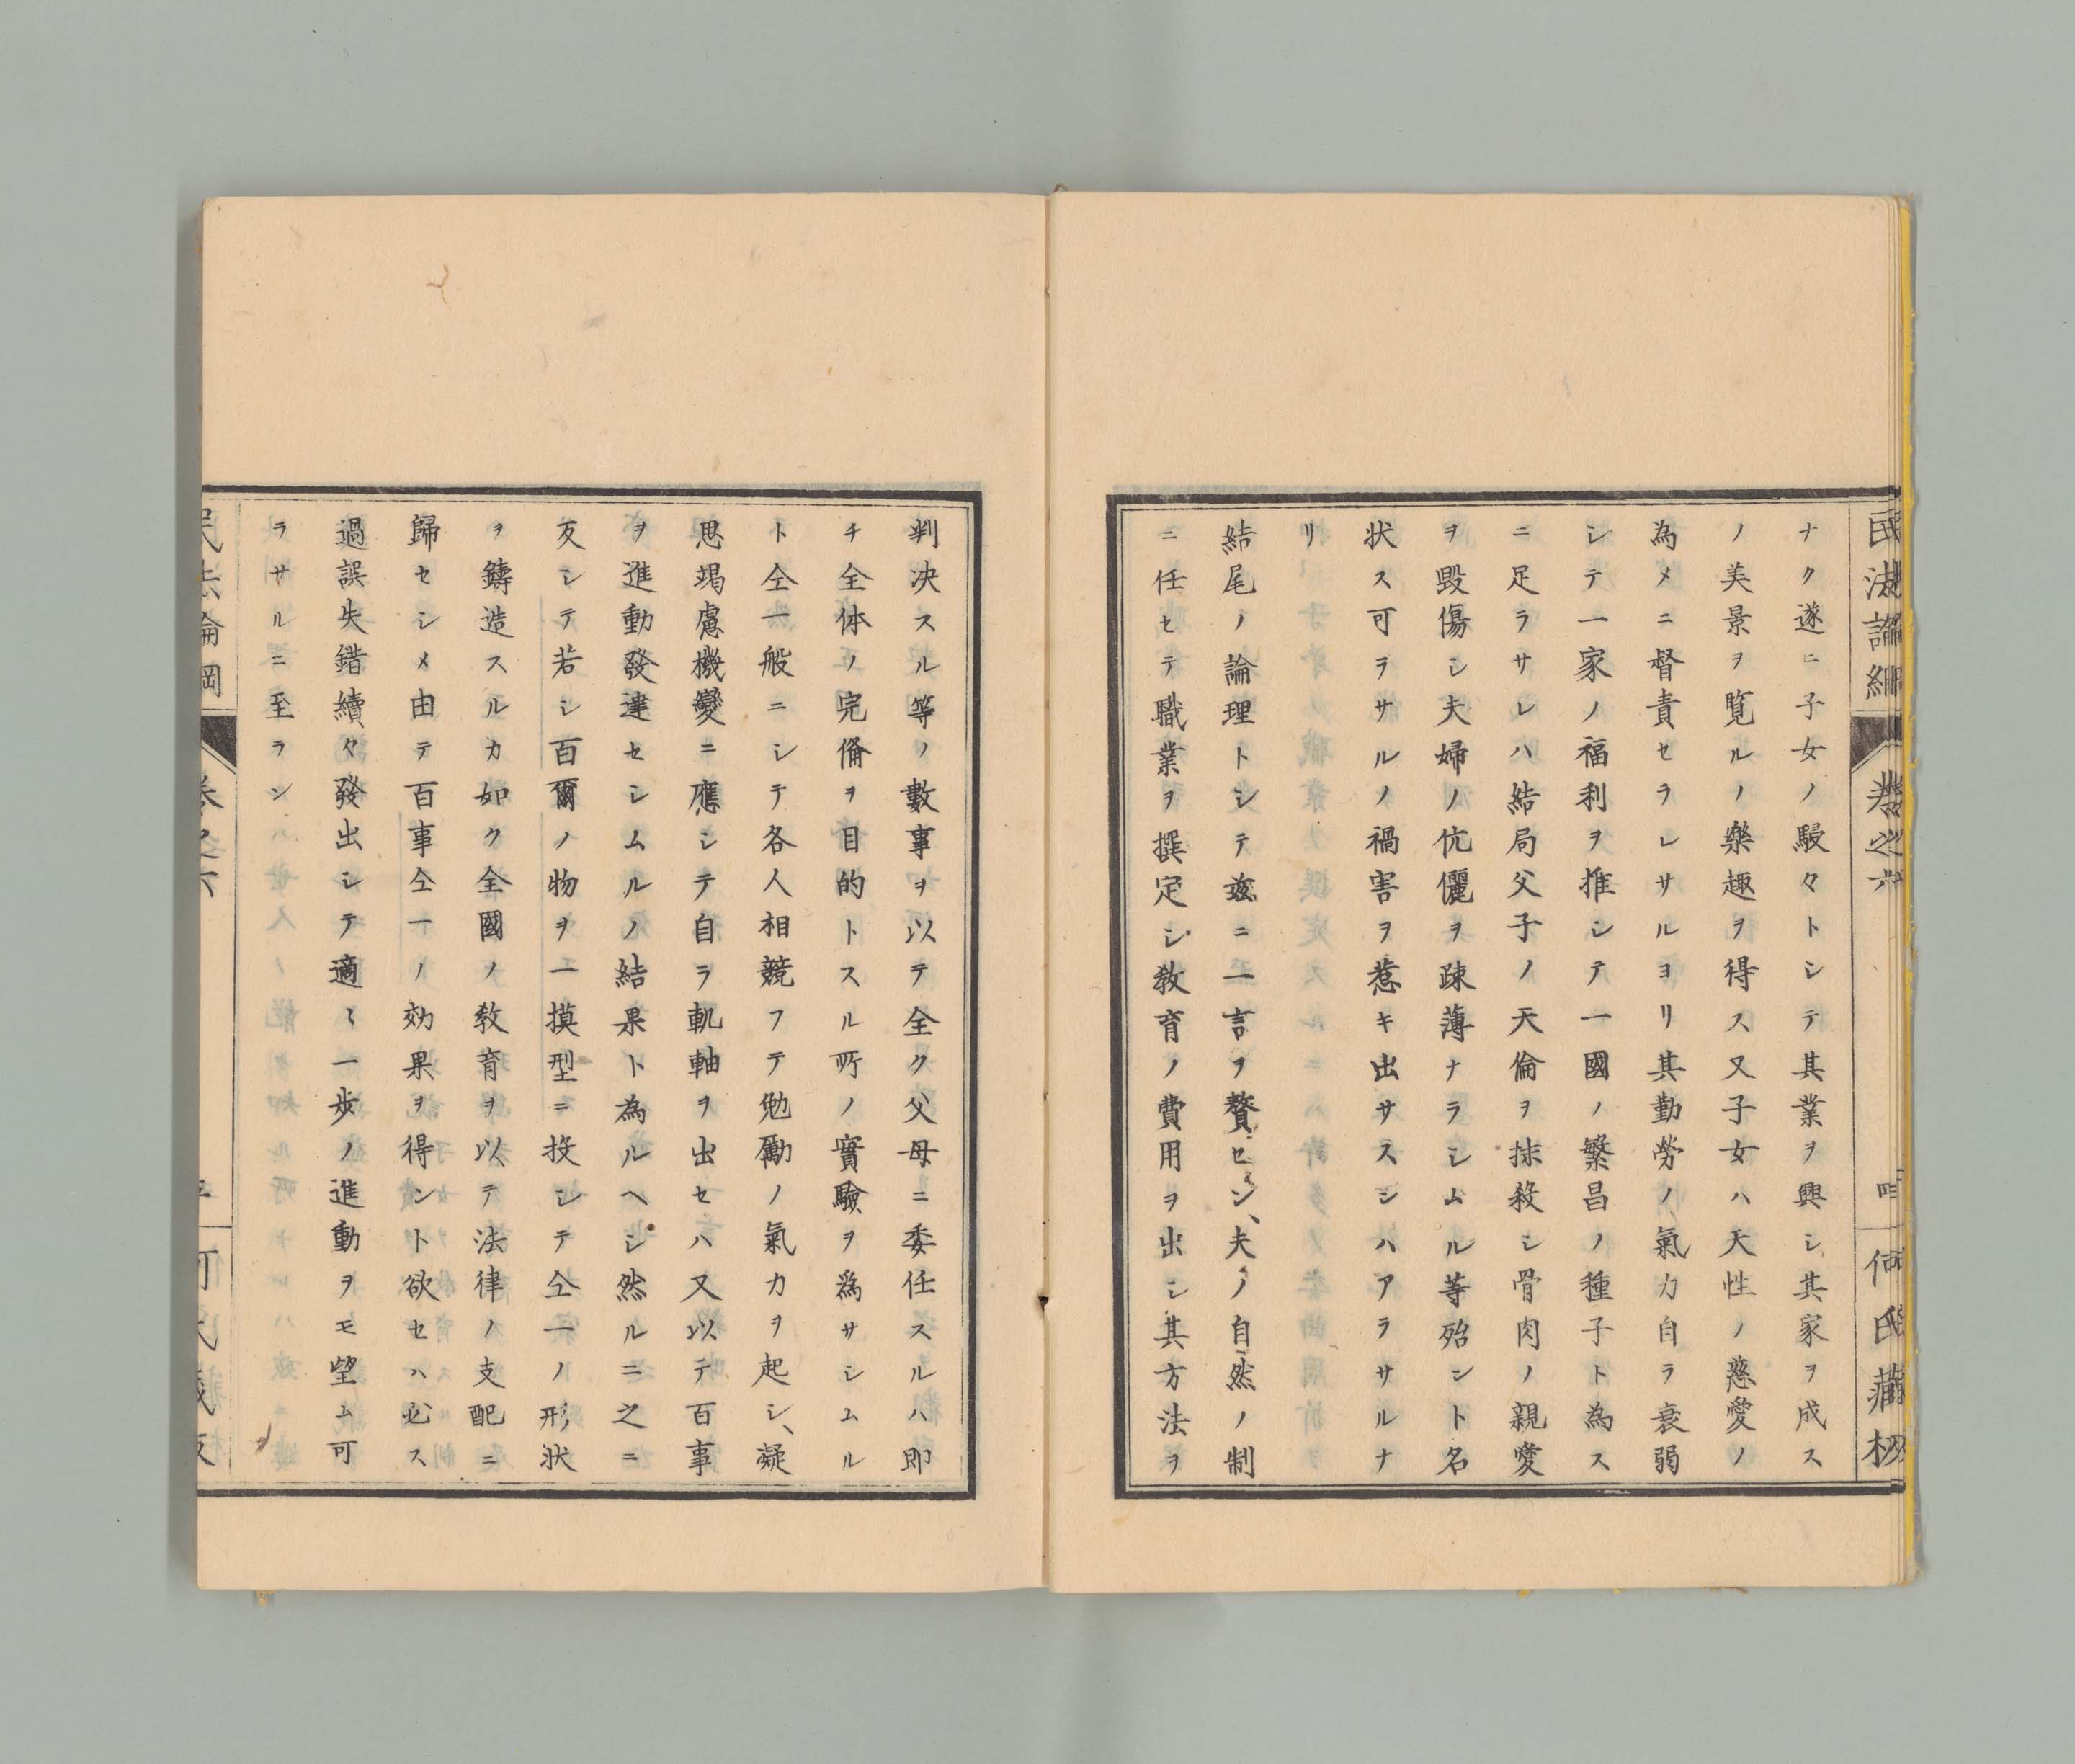 民法論綱
卷之六
四
何氏藏板
ナク遂ニ子女ノ駸々トシテ其業ヲ興シ其家ヲ成ス
ノ美景ヲ覧ルノ樂趣ヲ得ス又子女ハ天性ノ慈愛ノ
為メニ督責セラレサルヨリ其勤勞ノ氣力自ラ衰弱
シテ一家ノ福利ヲ推シテ一國ノ繁昌ノ種子ト為ス
ニ足ラサレハ結局父子ノ天倫ヲ抹殺シ骨肉ノ親愛
ヲ毀傷シ夫婦ノ伉儷ヲ疎薄ナラシムル等殆ント名
状ス可ラサルノ禍害ヲ惹キ出サスシハアラサルナ
リ
結尾ノ論理トシテ玆ニ一言ヲ贅セン、夫ノ自然ノ制
ニ任セテ職業ヲ撰定シ敎育ノ費用ヲ出シ其方法ヲ
判决スル等ノ數事ヲ以テ全ク父母ニ委任スルハ即
チ全体ノ完備ヲ目的トスル所ノ實驗ヲ為サシムル
ト仝一般ニシテ各人相競フテ勉勵ノ氣力ヲ起シ、凝
思竭慮機變ニ應シテ自ラ軌軸ヲ出セハ又以テ百事
ヲ進動發達セシムルノ結果ト為ルヘシ然ルニ之ニ
反シテ若シ百爾ノ物ヲ一摸型ニ投シテ仝一ノ形状
ヲ鑄造スルカ如ク全國ノ敎育ヲ以テ法律ノ支配ニ
歸セシメ由テ百事仝一ノ効果ヲ得ント欲セハ必ス
過誤失錯續々發出シテ適〻一歩ノ進動ヲモ望ム可
ラサルニ至ラン
民法論綱
卷之六
五
何氏藏板